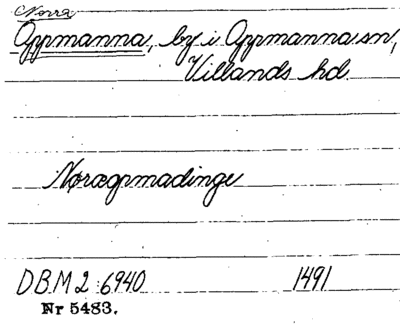 Norra
Oppmanna, by i Oppmanna sn,
Villands hd
Nøræopmadinge
DBM 2:6940 1491
Nr 5483.